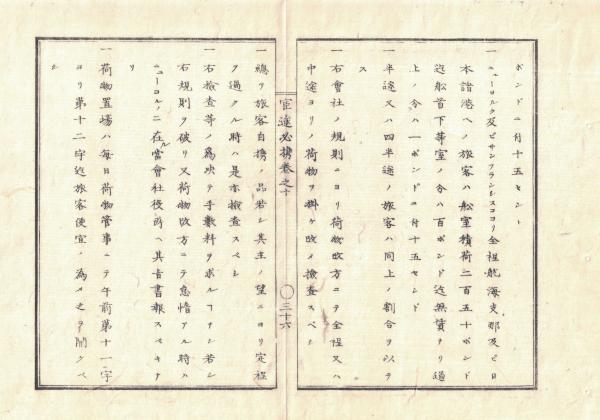 ポンドニ付十五セント
一ニューヨルク及ビサンフランシスコヨリ全程航海支那及ビ日
本諸港ヘノ旅客ハ舩室積荷二百五十ポンド
迄舩首下等室ノ分ハ百ポンド迄無賃ナリ過
上ノ分ハ一ポンドニ付十五セント
一半途又ハ四半途ノ旅客ハ同上ノ割合ヲ以テ
ス
一右會社ノ規則ニヨリ荷物改方ニテ全程又ハ
中途ヨリノ荷物ヲ掛ケ改メ檢査スベシ
官途必携巻之十
〇三十六
一總テ旅客自携ノ品若シ其主ノ望ニヨリ定程
ヲ過クル時ハ是亦檢査スベシ
一右檢査等ノ爲决テ手數料ヲ求ルヿナシ若シ
右規則ヲ破リ又荷物改方ニテ怠惰アル時ハ
ニューヨルクニ在ル當會社役所ヘ其旨書報スベキナ
リ
一荷物置場ハ毎日荷物管事ニテ午前第十一字
ヨリ第十二字迄旅客便宜ノ為メ之ヲ開クベ
シ